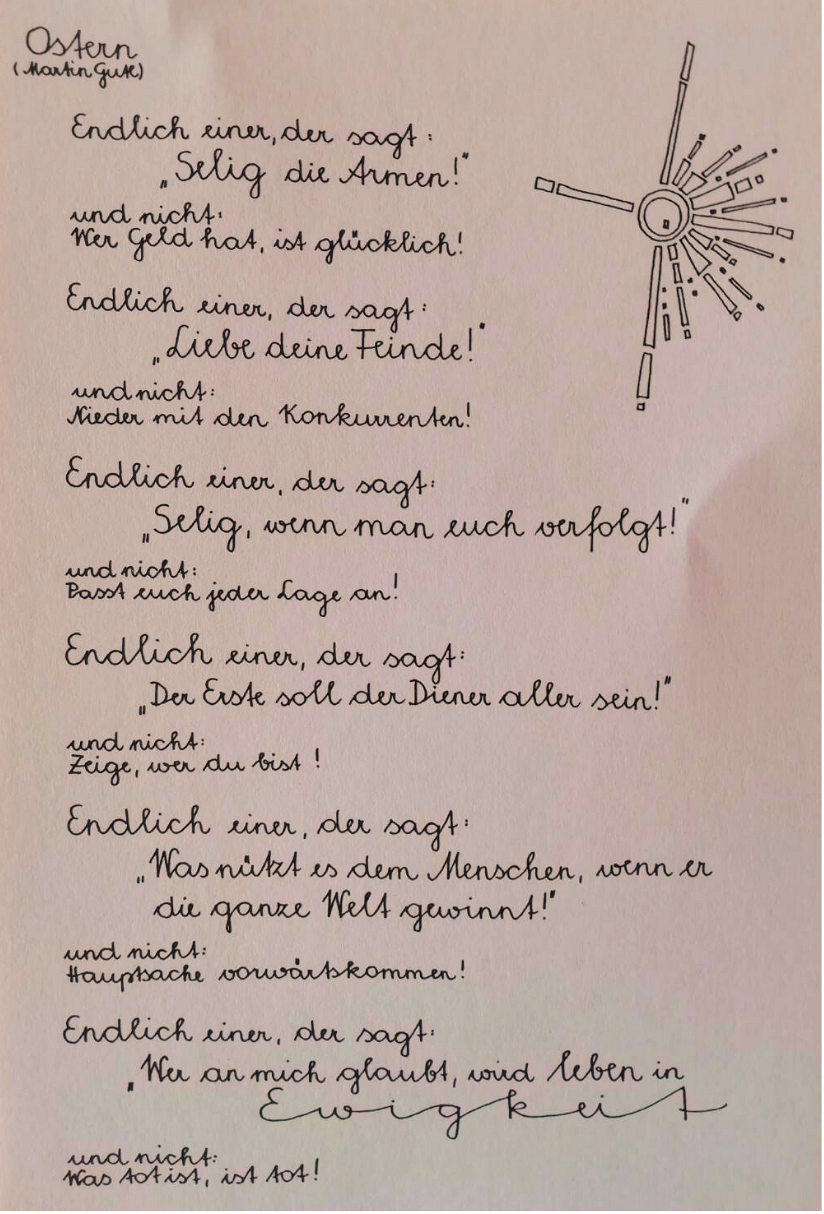 Ostern
(Martin Gutl)
Endlich einer, der sagt:
„Selig die Armen!"
und nicht:
Wer Geld hat, ist glücklich!
Endlich einer, der sagt:
„Liebe deine Feinde!"
und nicht:
Nieder mit den Konkurrenten!
Endlich einer, der sagt:
„Selig, wenn man euch verfolgt!"
und nicht:
Passt euch jeder Lage an!
Endlich einer, der sagt:
„Der Erste soll der Diener aller sein!"
und nicht:
Zeige, wer du bist!
Endlich einer, der sagt:
„Was nützt es dem Menschen, wenn er
die ganze Welt gewinnt!"
und nicht:
Hauptsache vorwärtskommen!
Endlich einer, der sagt:
„Wer an mich glaubt, wird leben in
Ewigkeit
und nicht:
Was tot ist, ist tot!